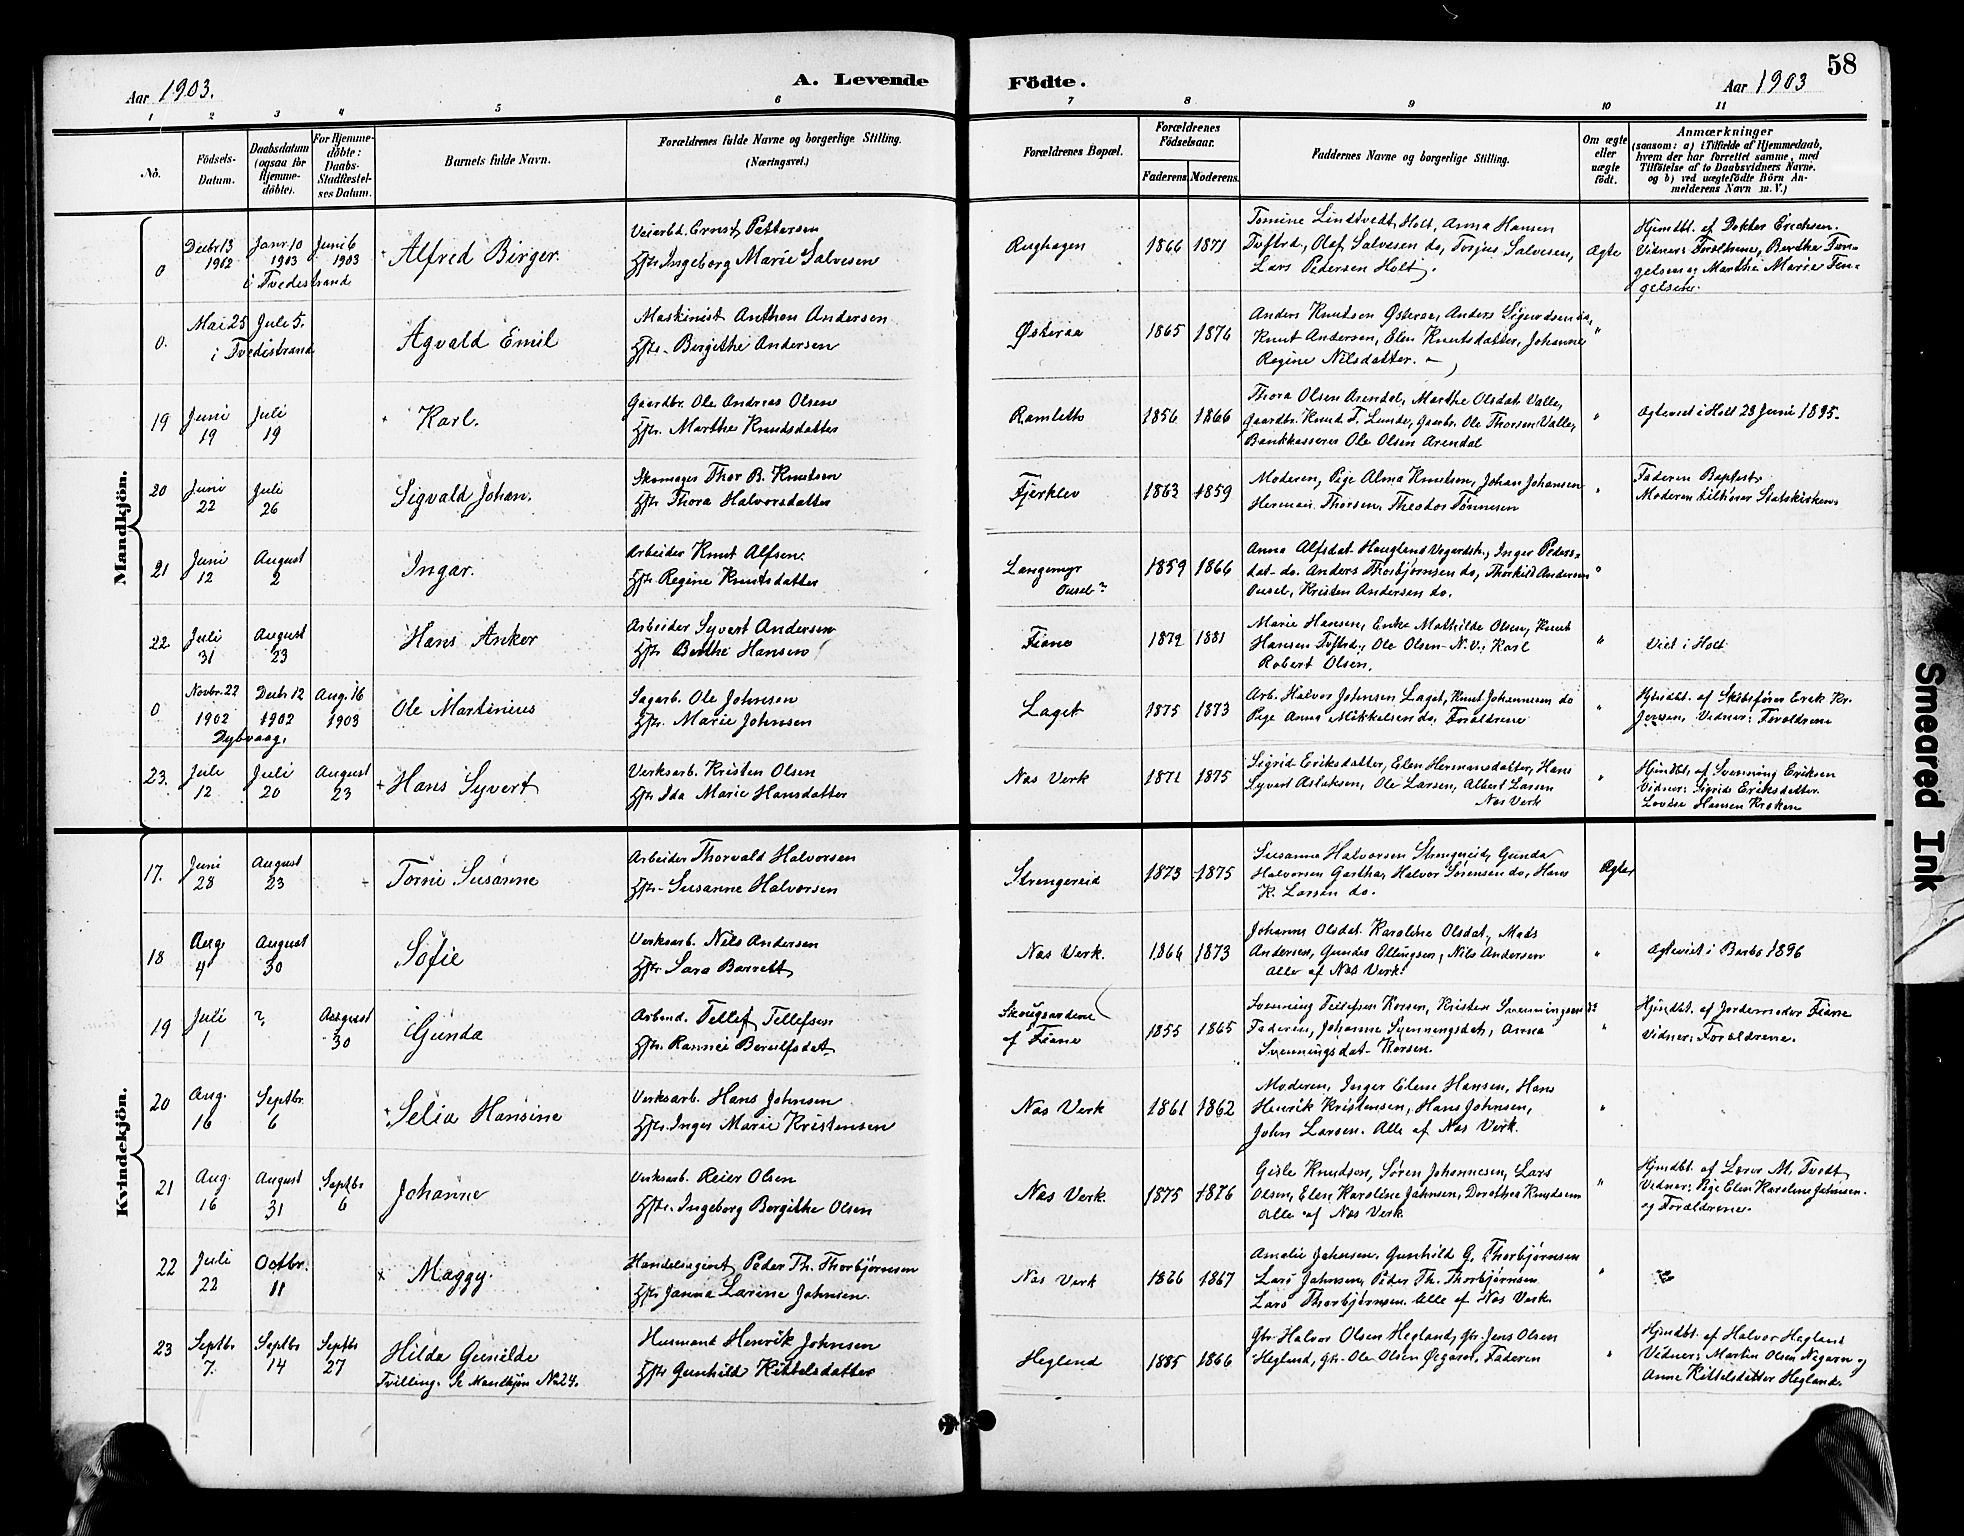 58
Aar 1903.
A. Levende
Födte.
Aar 1903
1 2 3 4 5 6 7 8 9 10 11
No.
Födsels-
Datum.
Daabsdatum
(ogsaa for
Hjemme-
döbte).
For Hjemme-
döbte:
Daabs-
Stadfæstel-
ses Datum.
Barnets fulde Navn.
Forældrenes fulde Navne og borgerlige Stilling.
(Næringsvei.)
Forældrenes Bopæl.
Forældrenes
Födselsaar.
Faderens
Moderens.
Faddernes Navne og borgerlige Stilling.
Om ægte
eller
uægte
født.
Anmærkninger
(saasom: a) i Tilfælde af Hjemmedaab,
hvem der har forrettet samme, med
Tilföielse af to Daabsvidners Navne.
og b) ved uægtefödte Börn An-
melderens Navn m. V.)
Mandkjön.
0
Decbr 13
1902
Janr. 10
1903
i Tvedestrand
Juni 6
1903
Alfred Birger.
Ernst Pettersen
Hstr. Ingeborg Marie Salvesen
1866
1871
Tomine Lindtvedt, Holt, Anna Hansen
Tvstrd., Olaf Salvesen do, Torjus Salvesen,
Lars Pedersen Holt.
Ægte
Hjmdbt. af Doktor Erichsen.
Vidner: Forældrene, Berthe Ten-
gelsen og Marthe Marie Ten-
gelsen.
0.
Mai 25
Juli 5.
i Tvedestrand
Agvald Emil
Maskinist Anthon Andersen
Hstr. Bergithe Andersen
Østeraa
1865
1876
Anders Knutson Østeraa, Anders Sigurdsen do,
Knut Andersen, Elen Knutsdatter, Johanne
Regine Nilsdatter.
"
19
Juni
19
Juli
19
Karl.
Gaardbr. Ole Andreas Olsen
Hstr. Marthe Knudsdatter
Ramleth
1856
1866
Thora Olsen Arendal, Marthe Olsdat. Valle,
Gaardbr. Knud T. Lunde, Gaabr. Ole Thorsen Valle,
Bankkasserer Ole Olsen Arendal
"
Ægteviet i Holt 28 Juni 1895.
20
Juni
22
Juli
26
Sigvald Johan.
Skomager Thor B. Knutsen
Hstr. Thora Halvorsdatter
Fjerklev
1863
1859
Moderen, Pige Alma Knutsen, Johan Johansen
Herman Thorsen, Theodor Tønnesen
"
Faderen Baptist,
Moderen tilhører Statskirken.
21
Juni
12
August
2
Ingar.
Arbeider Knut Alfsen.
Hstr. Regine Knutsdatter
Langemyr
Ousel
1859
1866
Anna Alfsdat. Haugland Vegardsh., Inger Peders-
dat. do. Anders Thorbjørnsen do, Thorkild Andersen
Ousel, Kristen Andersen do.
"
22
Juli
31
August
23
Hans Anker
Arbeider Syvert Andersen
Hstr. Berthe Hansen
Fiane
1872
1881
Marie Hansen, Enke Mathilde Olsen, Knut
Hansen Tvstrd., Ole Olsen N. V., Karl
Robert Olsen.
"
Viet i Holt
0
Novbr. 22
1902
Decbr 12
1902
Dybvaag.
Aug. 16
1903
Ole Martinius
Sagarb. Ole Johnsen
Hstr. Marie Johnsen
Laget
1875
1873
Arb. Halvor Johnsen Laget, Knut Johannesen do
Pige Anna Mikkelsen do, Forældrene
"
Hjmdbt. af Skibsfører Erik Kr.
Jensen, Vidner: Forældrene
23.
Juli
12
Juli
20
August
23
+ Hans Syvert
Verksarb. Kristen Olsen
Hstr. Ida Marie Hansdatter
Nas Verk
1871
1875
Sigrid Eriksdatter, Elen Hermansdatter, Hans
Syvert Aslaksen, Ole Larsen, Albert Larsen
Nas Verk
"
Hjmdbt. af Svenning Eriksen
Vidner: Sigrid Eriksdatter.
Lovise Hansen Kroken
Kvindekjön.
17.
Juni
28
August
23
Tomi Susanne
Arbeider Thorvald Halvorsen
Hstr. Susanne Halvorsen
Strengereid
1873
1875
Susanne Halvorsen Strengereid, Gunda
Halvorsen Gartha, Halvor Sørensen do, Hans
K. Larsen do.
Ægte
18
Aug.
4
August
30
Sofie
Verksarb. Nils Andersen
Hstr Sara Barrett
Nas Verk.
1866
1873
Johanne Olsdat. Karoline Olsdat, Mads
Andersen, Gunder Ellingsen, Nils Andersen
Alle af Nas Verk.
"
Ægteviet i Barbo 1896
19
Juli
1
?
August
30
Gunda
Arbeid. Tellef Tellefsen
Hstr. Rannei Berulfsdat
af Fiane
1855
1865
Svenning Tellefsen Korsen, Kristen Svenningsen do
Faderen, Johanne Svenningsdat, Anna
Svenningsdat. Korsen.
"
Hjmdbt. af Jordemoder Fiane
Vidner: Forældrene.
20
Aug.
16
Septbr.
6
Selia Hansine
Verksarb. Hans Johnsen
Hstr. Inger Marie Kristensen
Nas Verk
1861
1862
Moderen, Inger Elene Hansen, Hans
Henrik Kristensen, Hans Johnsen,
John Larsen. Alle af Nas Verk.
"
21
Aug.
16
August
31
Septbr
6
Johanne
Verksarb. Reier Olsen
Hstr. Ingeborg Bergithe Olsen
Nas Verk.
1875
1876
Gisle Knudsen, Søren Johannesen, Lars
Olsen, Elen Karoline Johnsen, Dorothea Knudsen
Alle af Nas Verk.
"
Hjmdbt. af Lærer M. Tvedt
Vidner: Pige Elen Karoline Johnsen.
og Forældrene.
22
Juli
22
Octbr.
11
x Maggy.
Handelsagent Peder Th. Thorbjørnsen
Hstr Janna Larine Johnsen.
Nas Verk
1866
1867
Amalie Johnsen, Gunhild G. Thorbjørnsen
Lars Johnsen, Peder Th. Thorbjørnsen
Lars Thorbjørnsen. Alle af Nas Verk.
"
23
Septbr
7.
Septbr
14
Septbr
27
Hilda Gunilde
Tvilling. Se Mandkjøn No 24.
Husmand Henrik Johnsen
Hstr Gunhild Kittelsdatter
Heglend
1885
1866
Gbr. Halvor Olsen Hegland, Gbr. Jens Olsen
Heglend, Gbr. Ole Olsen Øigaret, Faderen
"
Hjmdbt. af Halvor Hegland
Vidner: Martin Olsen Negarn og
Anne Kittelsdatter Hegland.
Smeared Ink